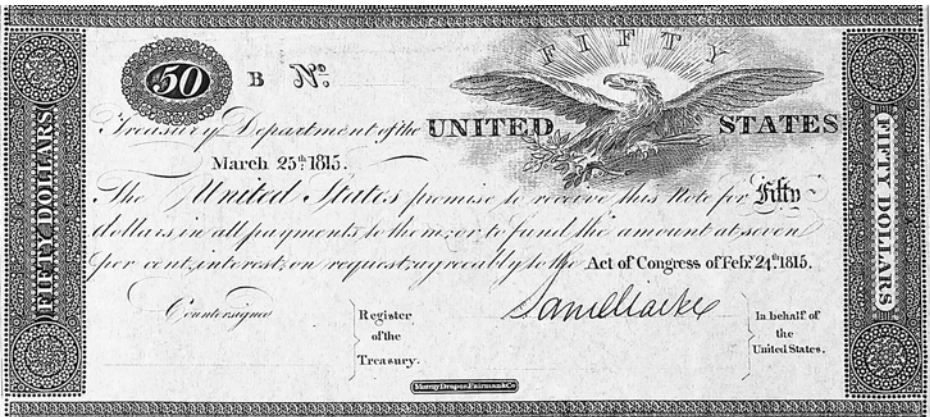 FIFTY
50 B No:
Treasury Department of the UNITED STATES
March 25th: 1815.
The United States promise to receive this Note for Fifty
dollars in all payments to them: or to fund the amount at seven
per cent, interest, on request, agreeably to the Act of Congress of Feby: 24th 1815.
Countersigned
Register
of the
Treasury.
In behalf of
the
United States.
Murray Draper, Fairman & Co
FIFTY DOLLARS
FIFTY DOLLARS